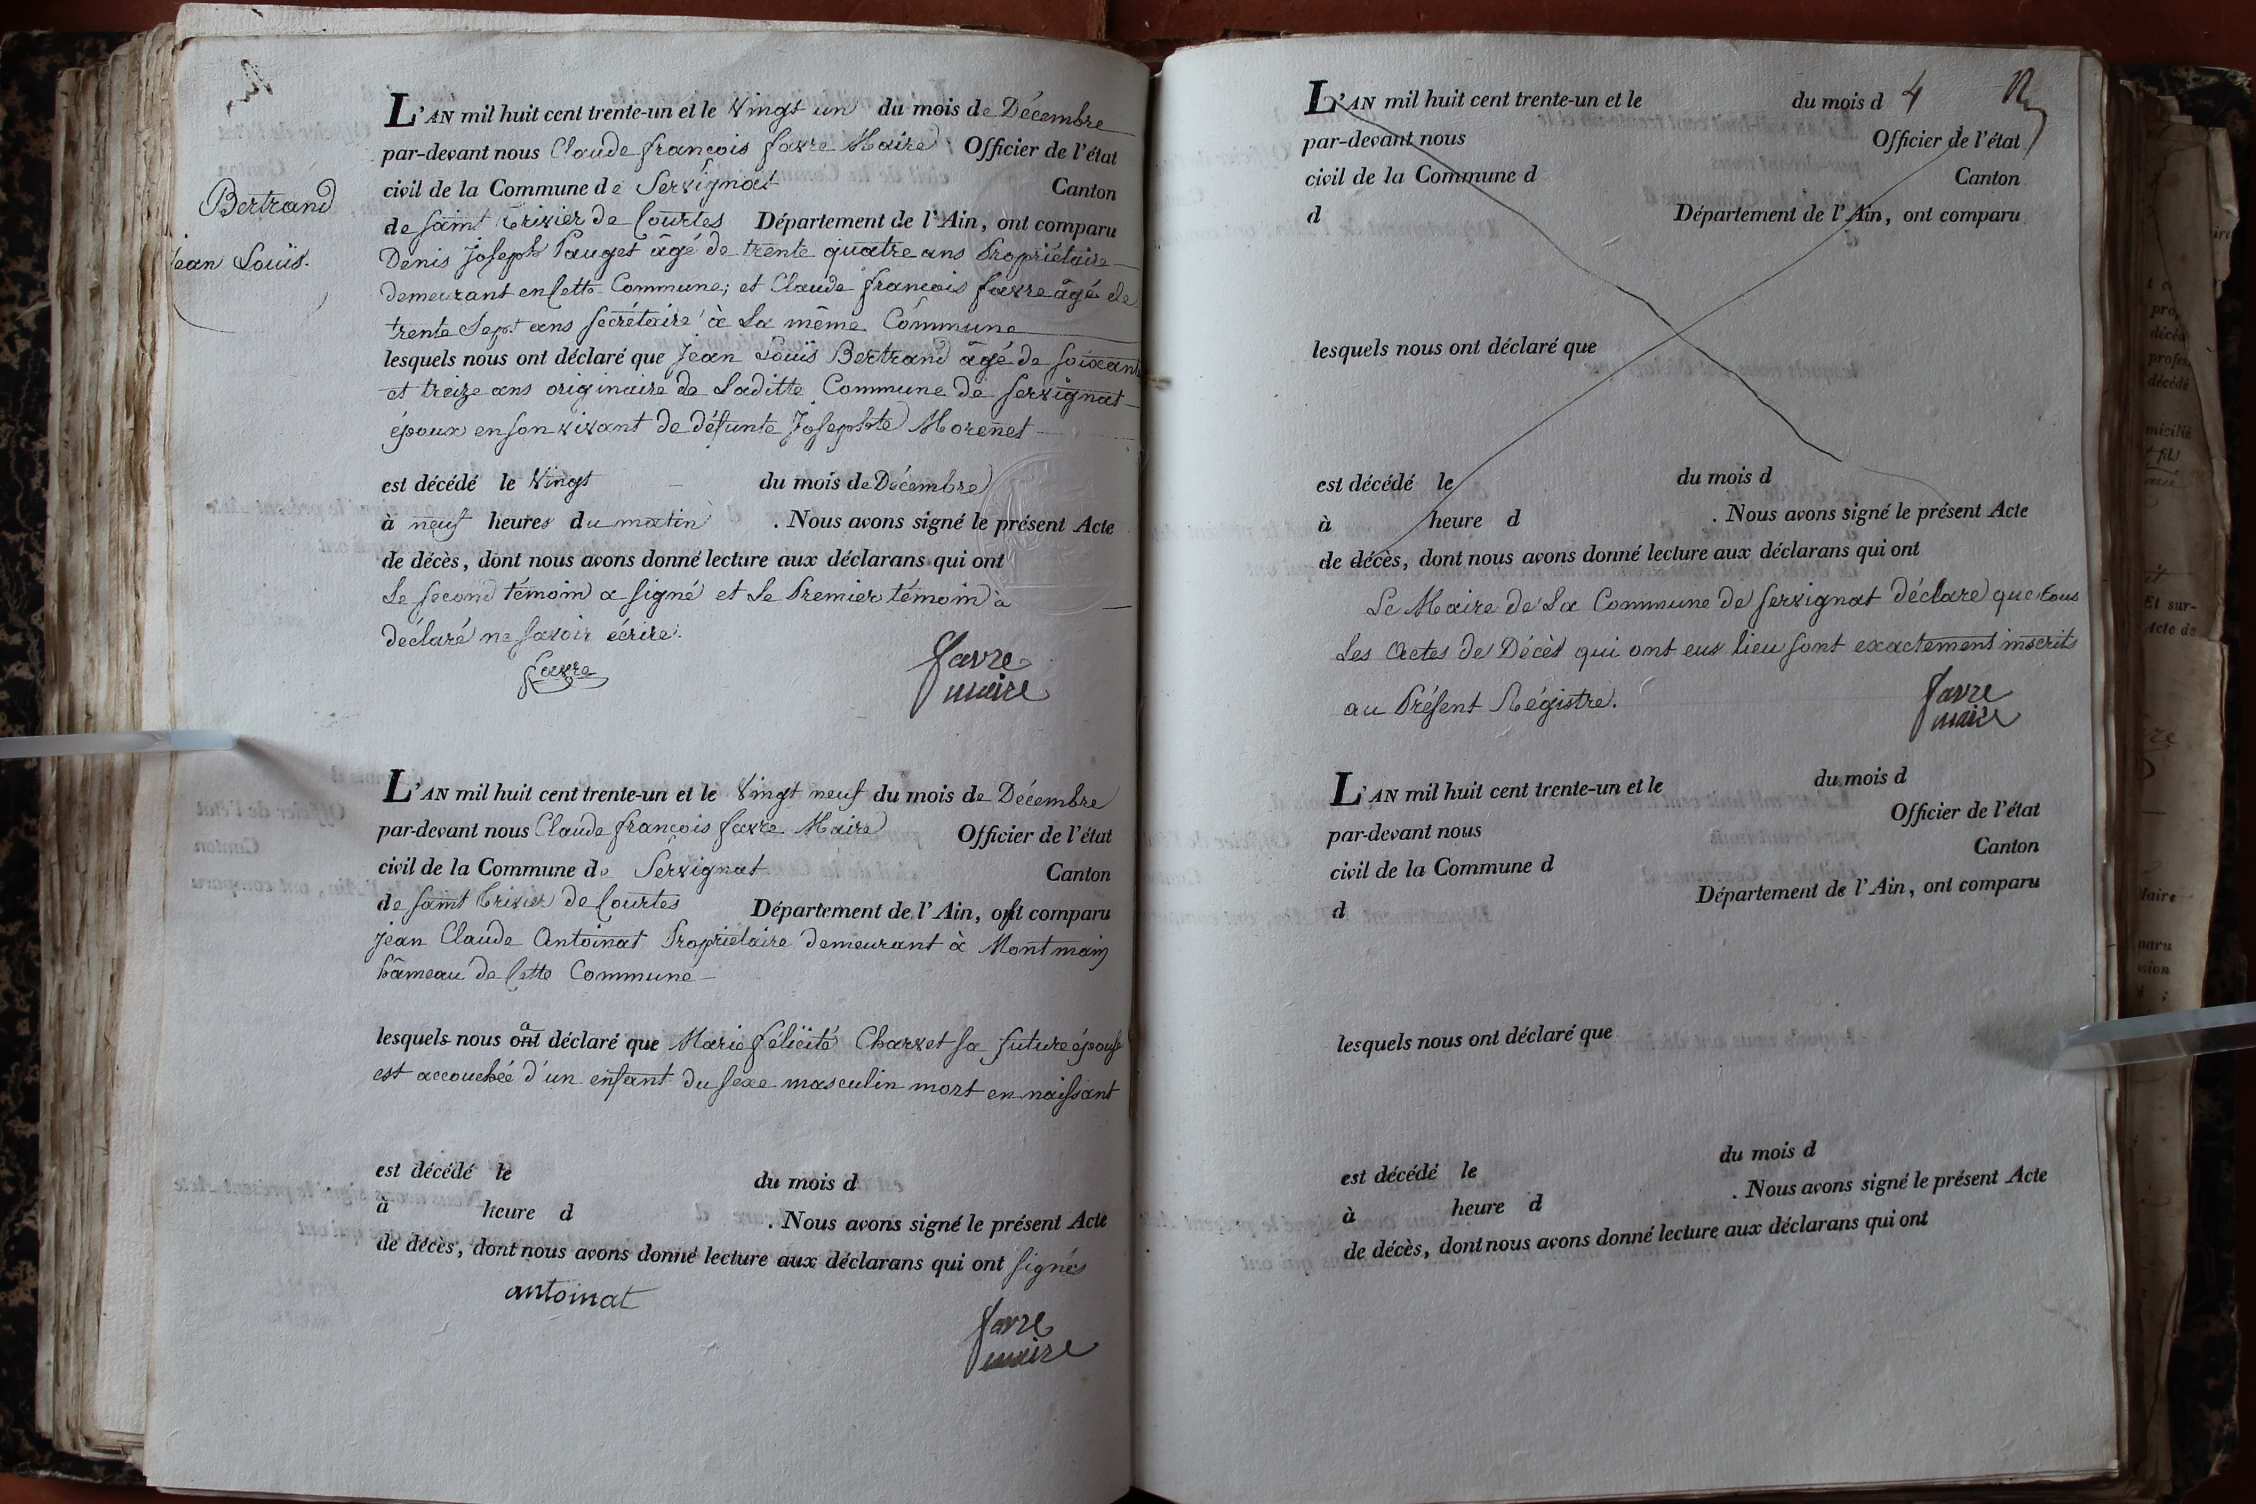 Bertrand
Jean Louis.
L'AN mil huit cent trente-un et le Vingt un du mois de Décembre
par-devant nous Claude françois favre Maire Officier de l'état
civil de la Commune de Servignat Canton
de Saint Trivier de Courtes Département de l'Ain, ont comparu
Denis Joseph Pauget âgé de trente quatre ans Propriétaire
demeurant en Cette Commune; et Claude françois favre âgé de
trente Sept ans Secrétaire à La même Commune
lesquels nous ont déclaré que Jean Louis Bertrand âgé de soixante
et treize ans originaire de Laditte Commune de Servignat
époux en son vivant de défunte Josephte Morenet
est décédé le Vingt du mois de Décembre
à neuf heures du matin . Nous avons signé le présent Acte
de décès, dont nous avons donné lecture aux déclarans qui ont
Le second témoin a signé et Le Premier témoin à
déclaré ne savoir écrire.
favre
favre
maire
L'AN mil huit cent trente-un et le Vingt neuf du mois de Décembre
par-devant nous Claude françois favre Maire Officier de l'état
civil de la Commune de Servignat Canton
de Saint Trivier de Courtes Département de l'Ain, ont comparu
Jean Claude Antoinat Propriétaire demeurant à Montmain
hâmeau de Cette Commune
lesquels nous a déclaré que Marie félicité Charvet sa future épouse
est accouchée d'un enfant du sexe masculin mort en naissant
est décédé le du mois d
à heure d . Nous avons signé le présent Acte
de décès, dont nous avons donné lecture aux déclarans qui ont signés
antoinat
favre
maire
4
L'AN mil huit cent trente-un et le du mois d
par-devant nous Officier de l'état
civil de la Commune d Canton
d Département de l'Ain, ont comparu
lesquels nous ont déclaré que
est décédé le du mois d
à heure d . Nous avons signé le présent Acte
de décès, dont nous avons donné lecture aux déclarans qui ont
Le Maire de La Commune de Servignat déclare que tous
Les Actes de Décès qui ont eus lieu sont exactement inscrits
au Présent Régistre.
favre
maire
L'AN mil huit cent trente-un et le du mois d
par-devant nous Officier de l'état
civil de la Commune d Canton
d Département de l'Ain, ont comparu
lesquels nous ont déclaré que
est décédé le du mois d
à heure d . Nous avons signé le présent Acte
de décès, dont nous avons donné lecture aux déclarans qui ont